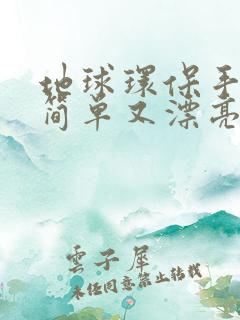 地球環保手
簡单又漂亮
雲子犀
未经同意禁止转载